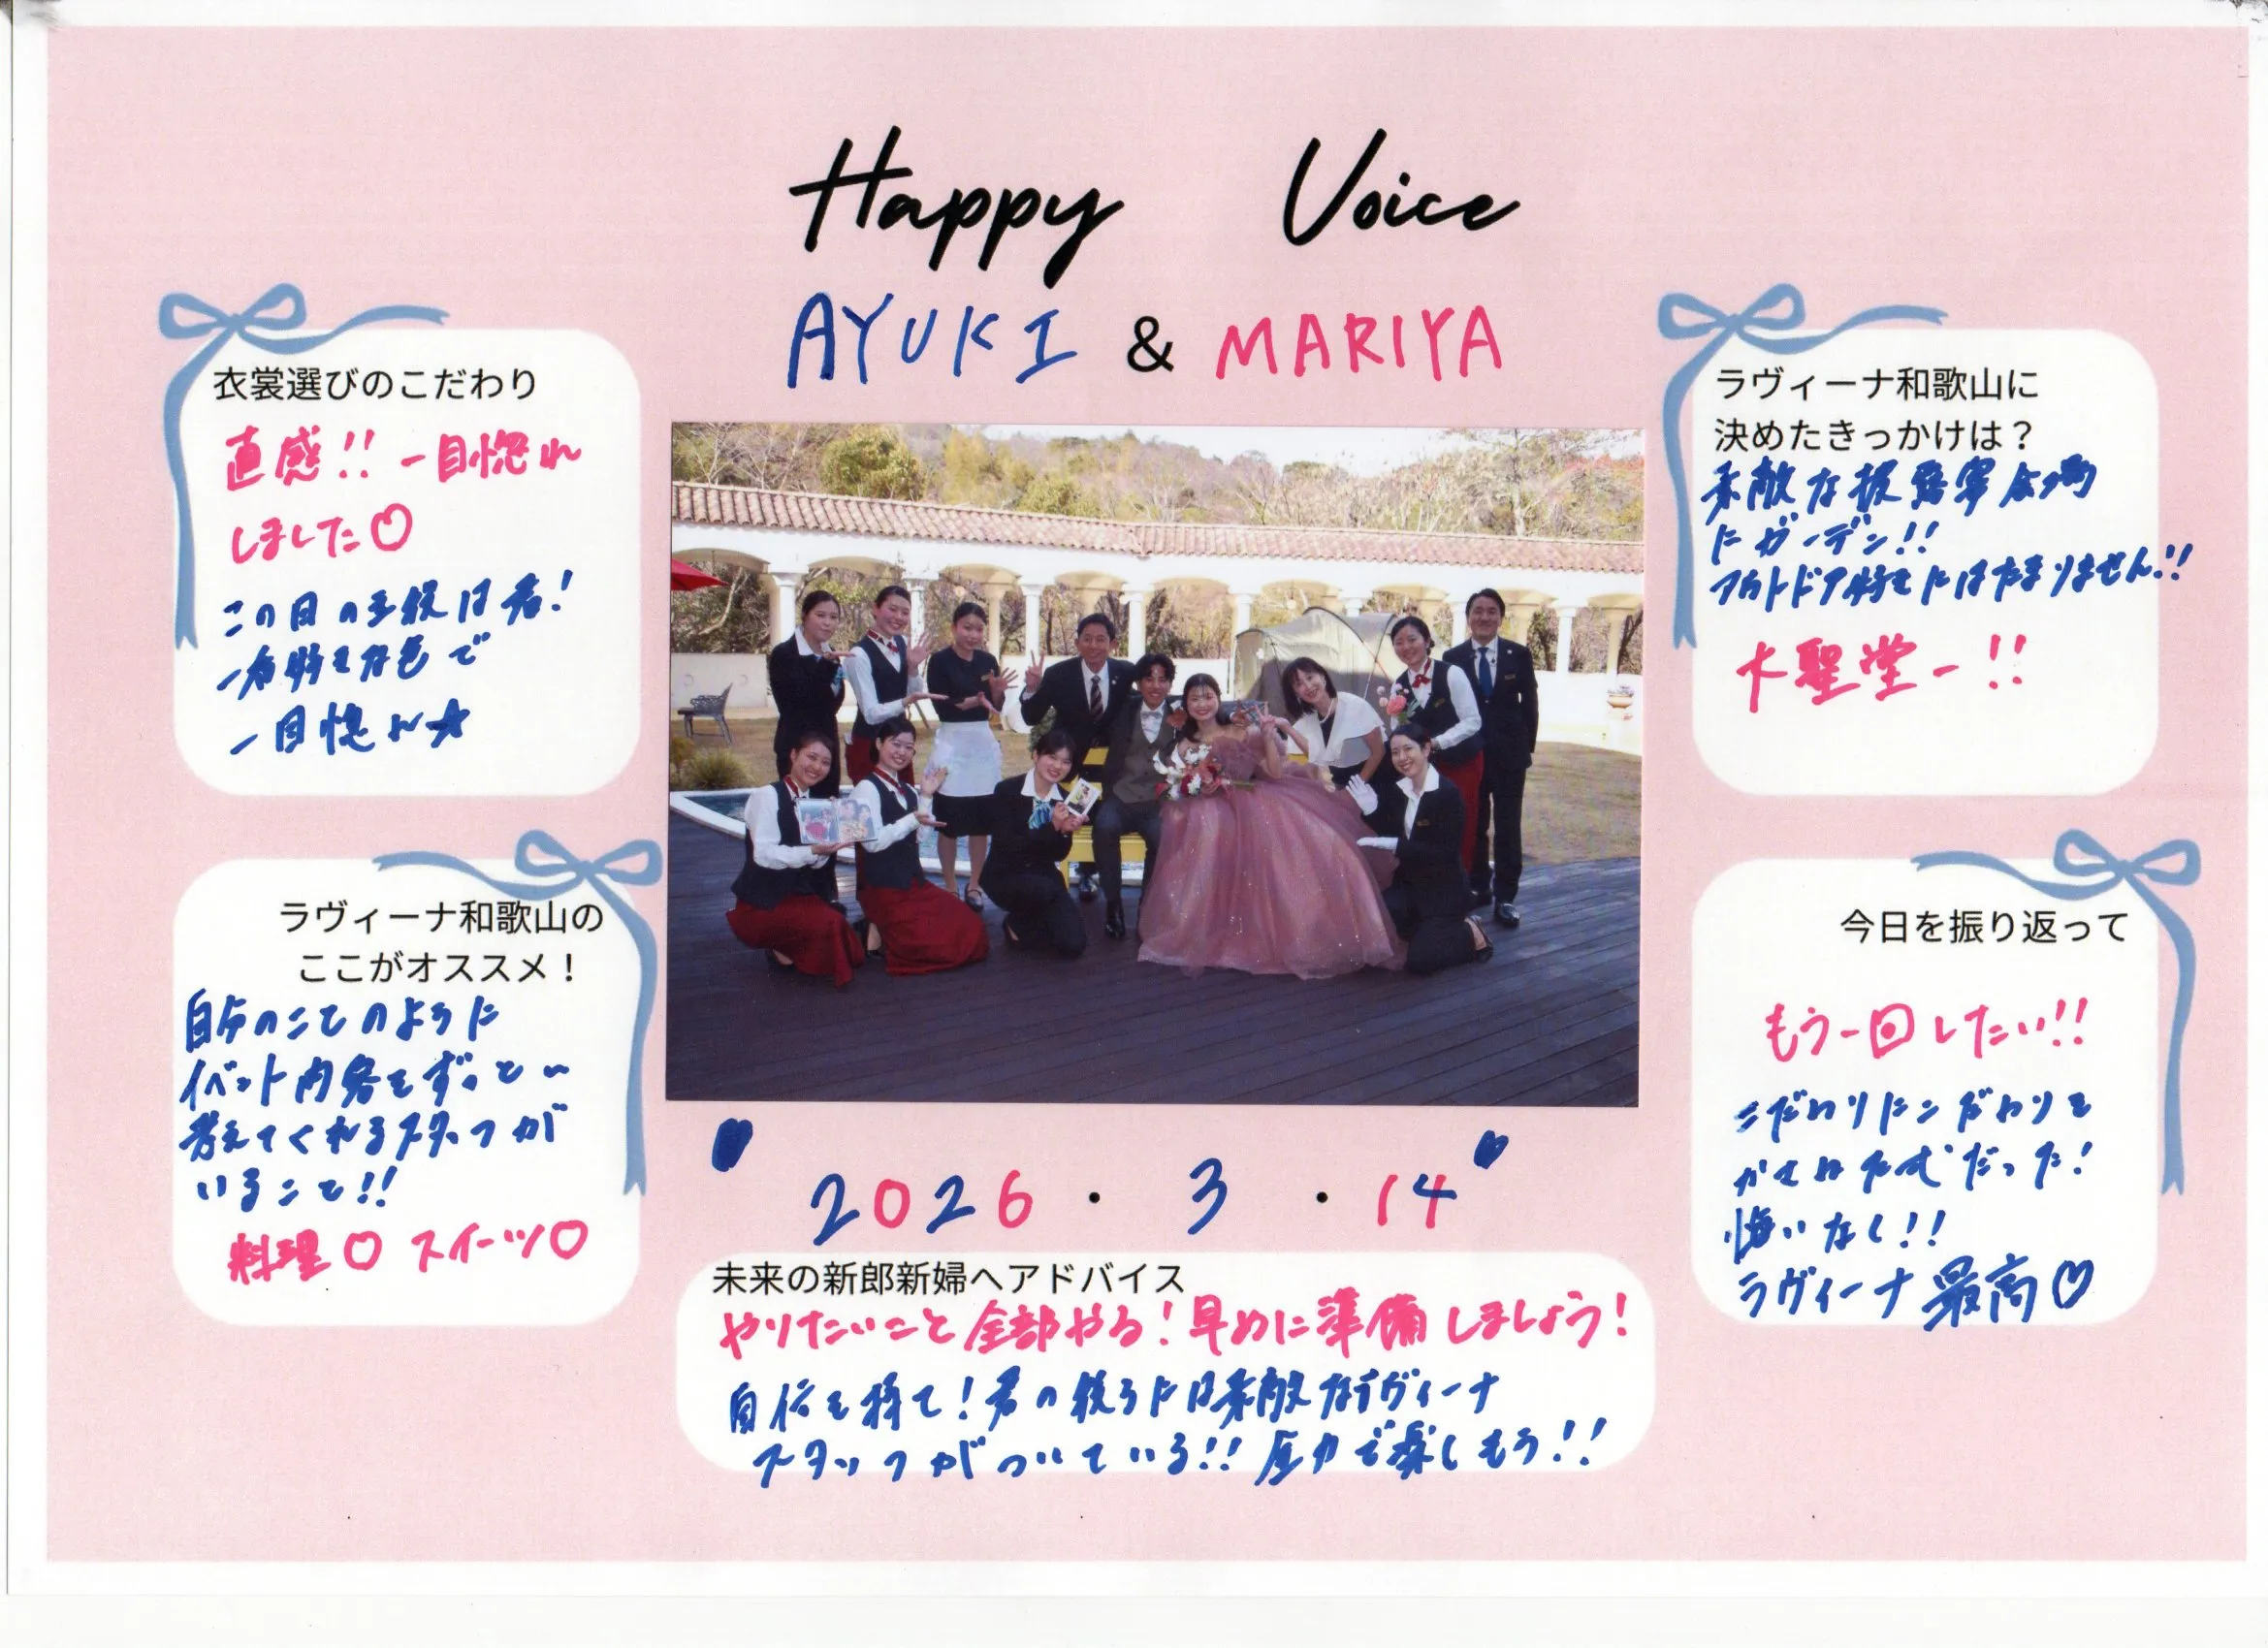 Happy Voice
AYUKI & MARIYA
衣裳選びのこだわり
直感!! 一目惚れ
しました♡
この日の主役は君!
一着特を着色で
一目惚れ★
ラヴィーナ和歌山に
決めたきっかけは？
素敵な披露宴会場
にガーデン!!
アウトドア好きにはたまりません!!
大聖堂ー!!
ラヴィーナ和歌山の
ここがオススメ！
自分のことのように
イベント内容をずっと〜
考えてくれるスタッフが
いること!!
料理♡ スイーツ♡
今日を振り返って
もう一回したい!!
こだわりにこだわりを
かさねた式だった!
悔いなく!!
ラヴィーナ最高♡
2026・3・14
未来の新郎新婦へアドバイス
やりたいこと全部やる! 早めに準備しましょう!
自信を持て! 君の後ろには素敵なラヴィーナ
スタッフがついている!! 全力で楽しもう!!